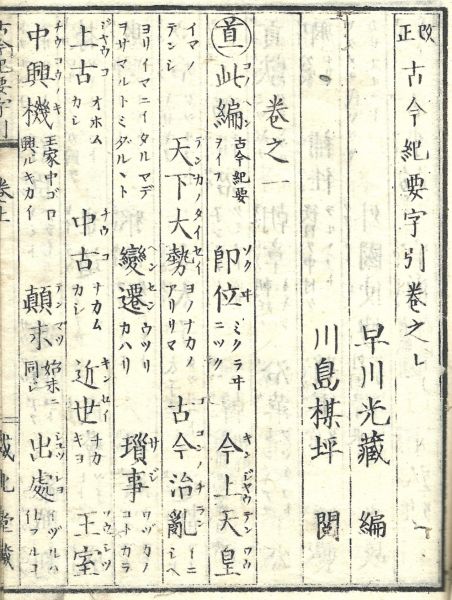 改正 古今紀要字引卷之上
早川光藏 編
川島棋坪 閱
卷之一
首 此編 コノヘン 古今紀要ヲイフ 即位 ソクヰ ミクラヰニツク 今上天皇 キンジヤウテンワウ
イマノテンシ 天下大勢 テンカノタイセイ ヨノナカノアリサマ 古今治亂 ココンノチラン イニシヘ
ヨリイマニイタルマデヲサマルトミダルヽト 變遷 ヘンセン ウツリカハリ 瑣事 サジ ワヅカノコトカラ
上古 ジヤウコ オホムカシ 中古 チウコ ナカムカシ 近世 キンセイ チカキヨ 王室 ワウシツ
中興機 チウコウノキ 王家中ゴロ興ルキカイ 顛末 テンマツ 始末ニ同ジ 出處 シユツシヨ イヅルハ仕フルコ
古今紀要字引 卷上